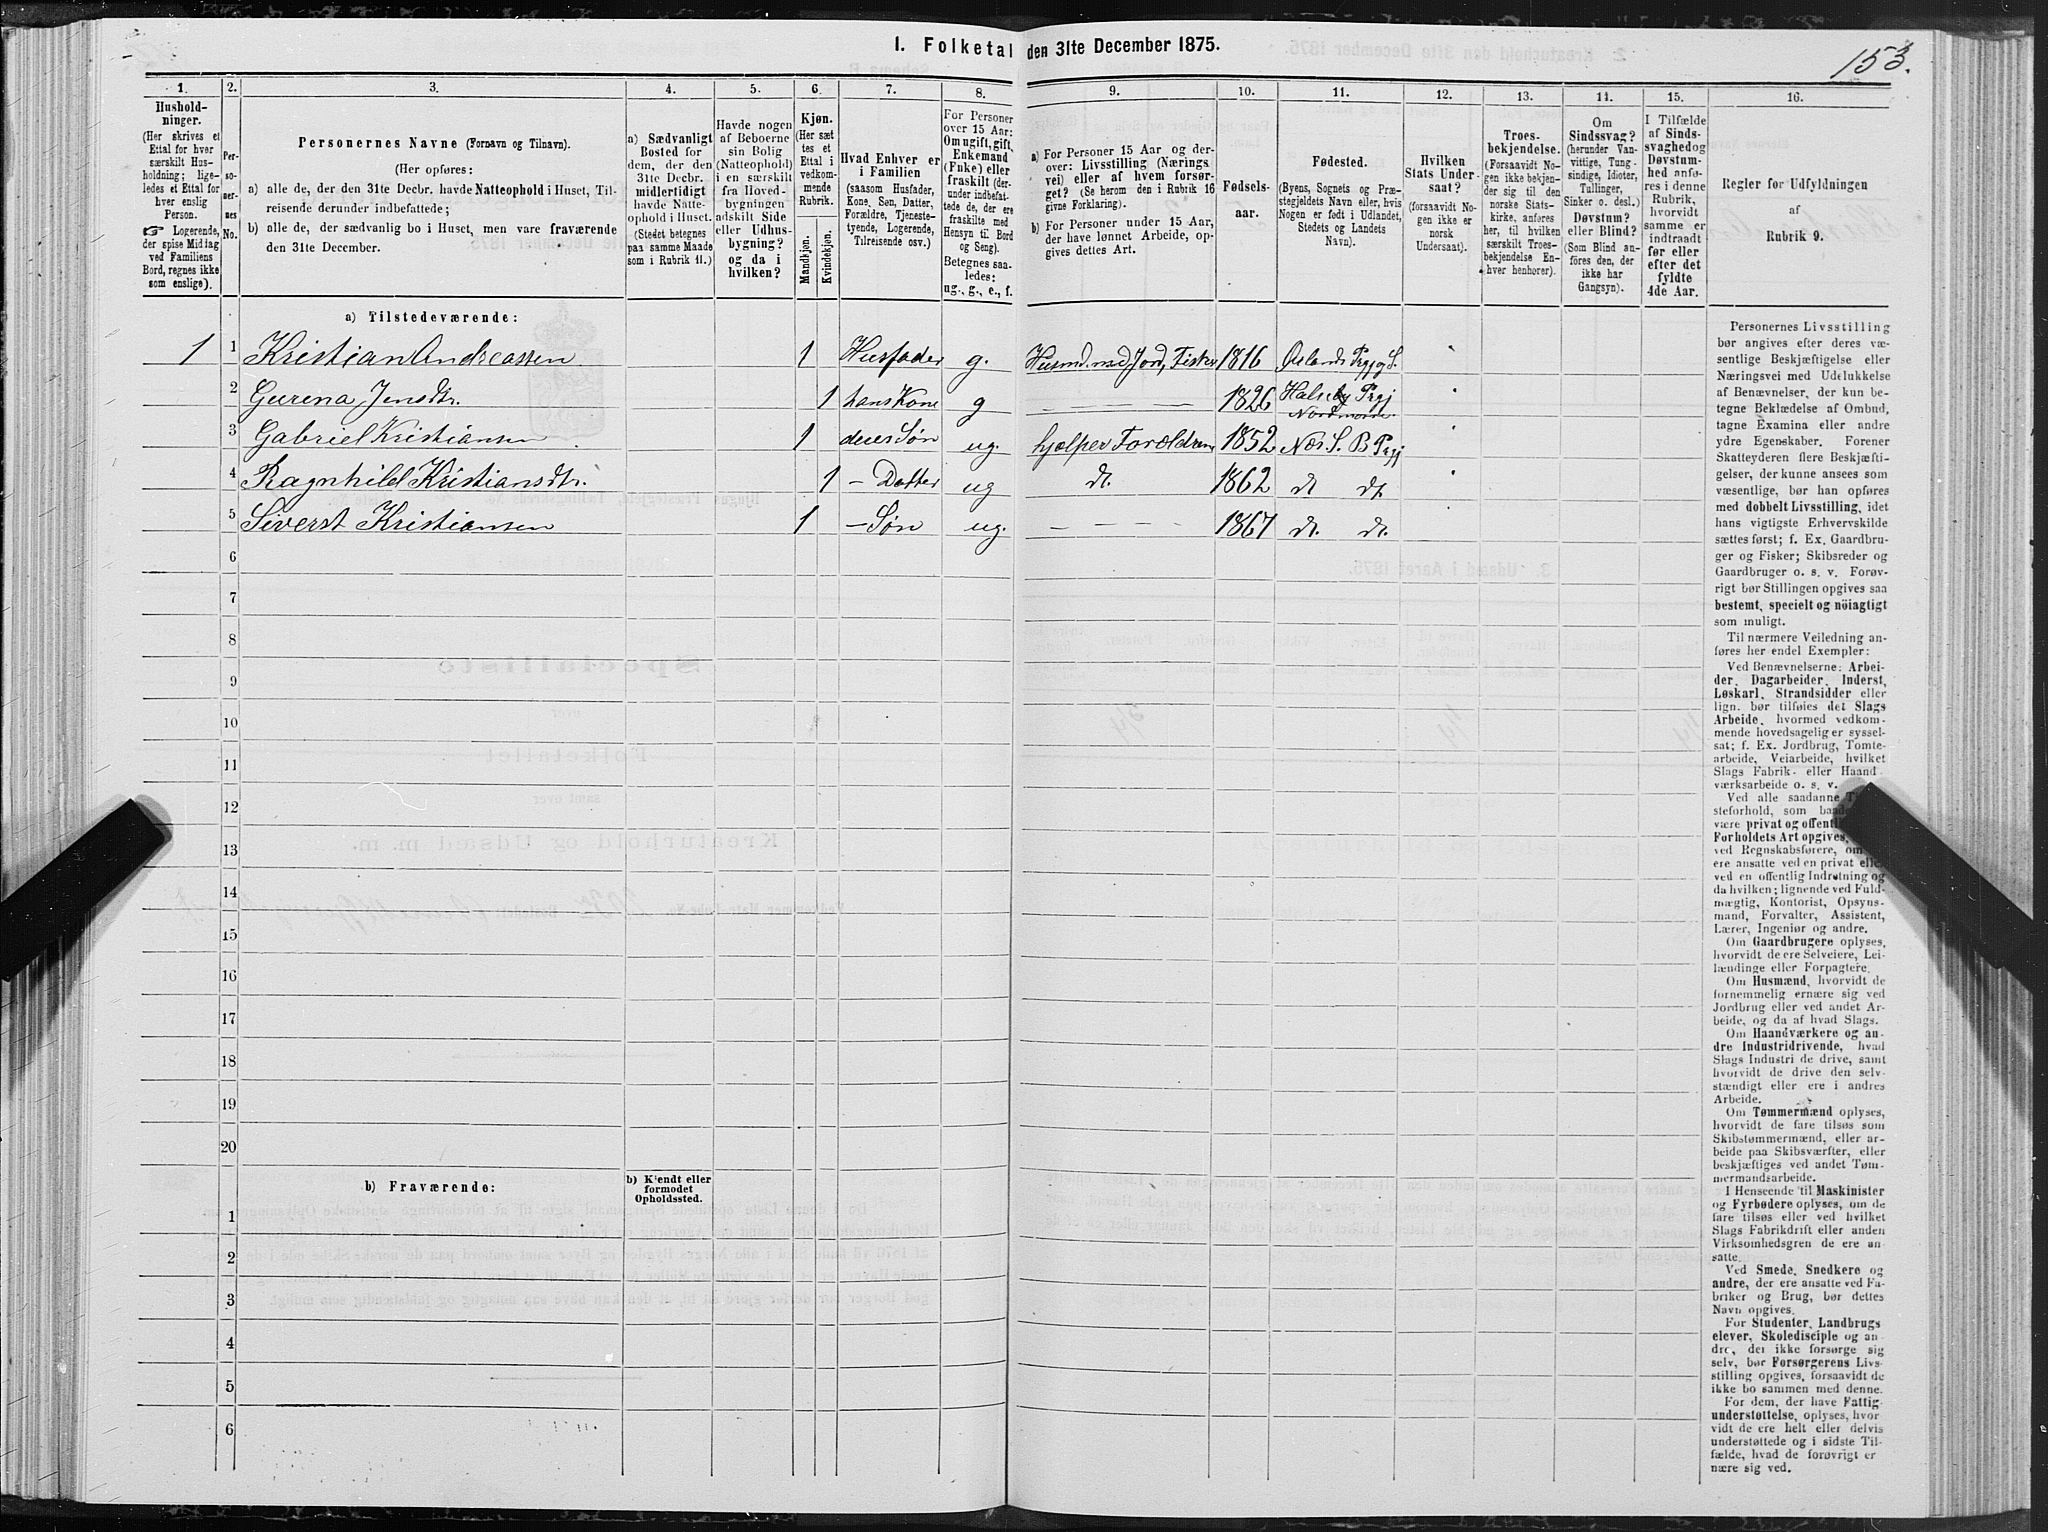 I. Folketal den 31te December 1875.
153.
1.
2.
3.
4.
5.
6.
7.
8.
9.
10.
11.
12.
13.
14.
15.
16.
Hushold-
ninger.
(Her skrives et
Ettal for hver
særskilt Hus-
holdning; lige-
ledes et Ettal for
hver enslig
Person.
☞ Logerende,
der spise Middag
ved Familiens
Bord, regnes ikke
som enslige).
Per-
so-
ner-
nes
No.
Personernes Navne (Fornavn og Tilnavn).
(Her opføres:
a) alle de, der den 31te Decbr. havde Natteophold i Huset, Til-
reisende derunder indbefattede;
b) alle de, der sædvanlig bo i Huset, men vare fraværende
den 31te December.
a) Sædvanligt
Bosted for
dem, der den
31te Decbr.
midlertidigt
havde Natte-
ophold i Huset.
(Stedet betegnes
paa samme Maade
som i Rubrik 11.)
Havde nogen
af Beboerne
sin Bolig
(Natteophold)
i en særskilt
fra Hoved-
bygningen
adskilt Side
eller Udhus-
bygning?
og da i
hvilken?
Kjøn.
(Her sæt
tes et
Ettal i
vedkom-
mende
Rubrik.
Mandkjøn.
Kvindekjøn.
Hvad Enhver er
i Familien
(saasom Husfader,
Kone, Søn, Datter,
Forældre, Tjeneste-
tyende, Logerende,
Tilreisende osv.)
For Personer
over 15 Aar:
Om ugift, gift,
Enkemand
(Enke) eller
fraskilt (der-
under indbefat-
tede de, der ere
fraskilte med
Hensyn til Bord
og Seng).
Betegnes saa-
ledes:
ug., g., e., f.
a) For Personer 15 Aar og der-
over: Livsstilling (Nærings
vei) eller af hvem forsør-
get? (Se herom den i Rubrik 16
givne Forklaring).
b) For Personer under 15 Aar,
der have lønnet Arbeide, op-
gives dettes Art.
Fødsels-
aar.
Fødested.
(Byens, Sognets og Præ-
stegjeldets Navn eller, hvis
Nogen er født i Udlandet,
Stedets og Landets
Navn).
Hvilken
Stats Under-
saat?
(forsaavidt No-
gen ikke er
norsk
Undersaat).
Troes-
bekjendelse.
(Forsaavidt No-
gen ikke bekjen-
der sig til den
norske Stats-
kirke, anføres
her, til hvilken
særskilt Troes-
bekjendelse En-
hver henhører).
Om
Sindssvag?
(herunder Van-
vittige, Tung-
sindige, Idioter,
Tullinger,
Sinker o. desl.)
Døvstum?
eller Blind?
(Som Blind an-
føres den, der
ikke har
Gangsyn).
I Tilfælde
af Sinds-
svaghed og
Døvstum-
hed anfø-
res i denne
Rubrik,
hvorvidt
samme er
indtraadt
før eller
efter det
fyldte
4de Aar.
Regler for Udfyldningen
af
Rubrik 9.
a) Tilstedeværende:
1 1 Kristian Andreassen 1 Husfader g. Husmd. med Jord, Fisker 1816 Øslands Prgj og S.
2 Gurena Jensdtr. 1 hans Kone g — — — 1826 Halseby Prgj Nordmøre
3 Gabriel Kristiansen 1 deres Søn ug. hjælper Forældrene 1852 Næs S. B Prgj
4 Ragnhild Kristiansdtr. 1 — Datter ug dt. 1862 dt dt.
5 Siverst Kristiansen 1 — Søn ug. — — — 1867 dt. dt.
6
7
8
9
10
11
12
13
14
15
16
17
18
19
20
b) Fraværende:
b) Kjendt eller
formodet
Opholdssted.
1
2
3
4
5
6
Personernes Livsstilling
bør angives efter deres væ-
sentlige Beskjæftigelse eller
Næringsvei med Udelukkelse
af Benævnelser, der kun be-
tegne Beklædelse af Ombud,
tagne Examina eller andre
ydre Egenskaber. Forener
Skatteyderen flere Beskjæfti-
gelser, der kunne ansees som
væsentlige, bør han opføres
med dobbelt Livsstilling, idet
hans vigtigste Erhvervskilde
sættes først; f. Ex. Gaardbru-
ger og Fisker; Skibsreder og
Gaardbruger o. s. v. Forøv-
rigt bør Stillingen opgives saa
bestemt, specielt og nöiagtigt
som muligt.
Til nærmere Veiledning an-
føres her endel Exempler:
Ved Benævnelserne: Arbei-
der, Dagarbeider, Inderst,
Løskarl, Strandsidder eller
lign. bør tilføies det Slags
Arbeide, hvormed vedkom-
mende hovedsagelig er syssel-
sat; f. Ex. Jordbrug, Tomte-
arbeide, Veiarbeide, hvilket
Slags Fabrik- eller Haand
værksarbeide o. s. v.
Ved alle saadanne
steforhold, som
være privat og
Forholdets Art opgives,
ved Regnskabsførere, om
ere ansatte ved en privat eller
ved en offentlig Indretning og
da hvilken; lignende ved Fuld-
mægtig, Kontorist, Opsyns-
mand, Forvalter, Assistent,
Lærer, Ingeniør og andre.
Om Gaardbrugere oplyses,
hvorvidt de ere Selveiere, Lei-
lændinge eller Forpagtere.
Om Husmænd, hvorvidt de
fornemmelig ernære sig ved
Jordbrug eller ved andet Ar-
beide, og da af hvad Slags.
Om Haandværkere og an-
dre Industridrivende, hvad
Slags Industri de drive, samt
hvorvidt de drive den selv-
stændigt eller ere i andres
Arbeide.
Om Tømmermænd oplyses,
hvorvidt de fare tilsøs som
Skibstømmermænd, eller ar-
beide paa Skibsværfter, eller
beskjæftiges ved andet Tøm-
mermandsarbeide.
I Henseende til Maskinister
og Fyrbødere oplyses, om de
fare tilsøs eller ved hvilket
Slags Fabrikdrift eller anden
Virksomhedsgren de ere an-
satte.
Ved Smede, Snedkere og
andre, der ere ansatte ved Fa-
briker og Brug, bør dettes
Navn opgives.
For Studenter, Landbrugs
elever, Skoledisciple og an-
dre, der ikke forsørge sig
selv, bør Forsørgerens Livs-
stilling opgives, forsaavidt de
ikke bo sammen med denne.
For dem, der have Fattig
understøttelse, oplyses, hvor
vidt de ere helt eller delvis
understøttede og i sidste Til-
fælde, hvad de forøvrigt er
nære sig ved.